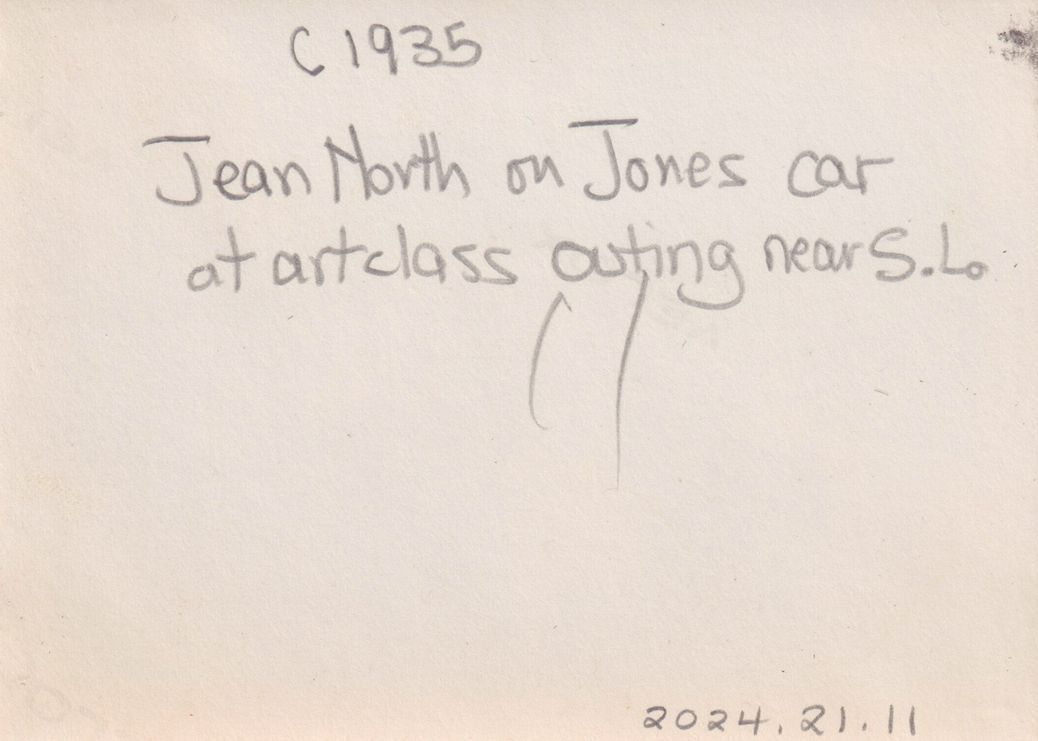 C 1935
Jean North on Jones car
at art class outing near S.L.
2024.21.11